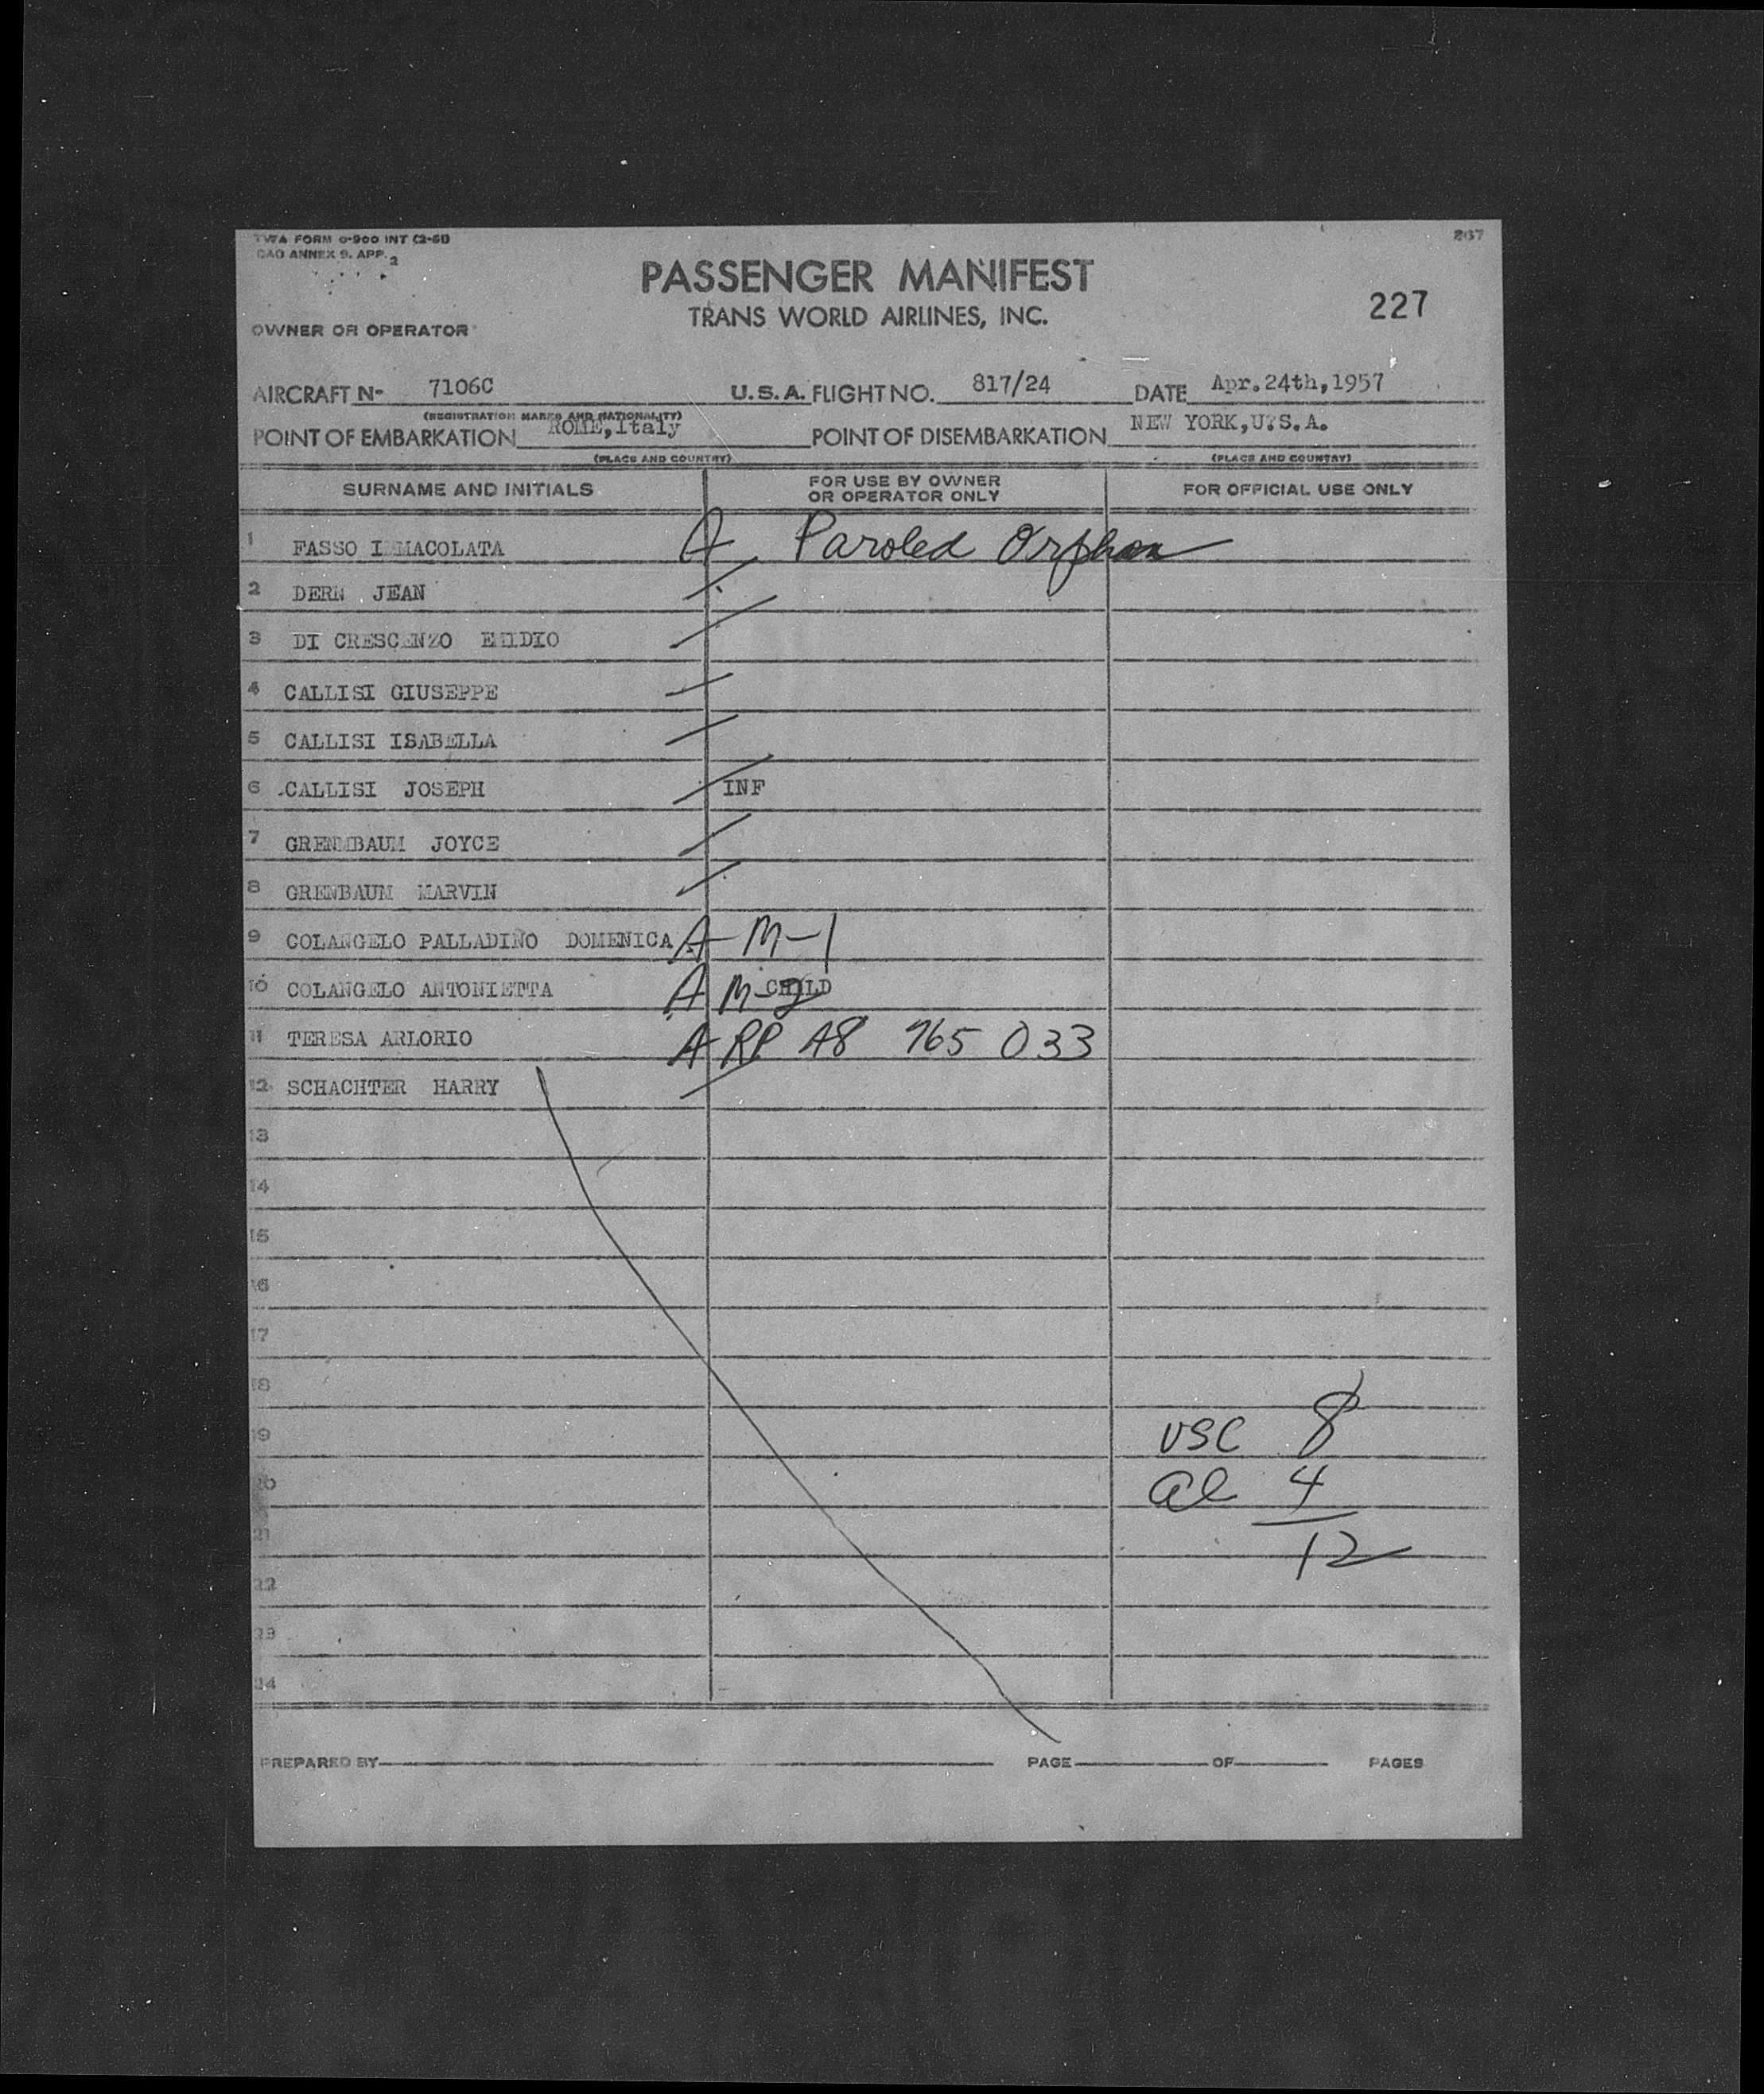 TWA FORM 0-900 INT (2-51)
ICAO ANNEX 9. APP. 2
267
PASSENGER MANIFEST
227
TRANS WORLD AIRLINES, INC.
OWNER OR OPERATOR
AIRCRAFT N- 7106C U.S.A. FLIGHT NO. 817/24 DATE Apr.24th,1957
(REGISTRATION MARKS AND NATIONALITY)
POINT OF EMBARKATION ROME,Italy POINT OF DISEMBARKATION NEW YORK,U.S.A.
(PLACE AND COUNTRY) (PLACE AND COUNTRY)
SURNAME AND INITIALS FOR USE BY OWNER OR OPERATOR ONLY FOR OFFICIAL USE ONLY
1 FASSO IMMACOLATA A Paroled Orphan
2 DERN JEAN
3 DI CRESCENZO EMIDIO
4 CALLISI GIUSEPPE
5 CALLISI ISABELLA
6 CALLISI JOSEPH INF
7 GRENMBAUM JOYCE
8 GRENBAUM MARVIN
9 COLANGELO PALLADINO DOMENICA A M-1
10 COLANGELO ANTONIETTA A M-2 CHILD
11 TERESA ARLORIO A RP A8 765 033
12 SCHACHTER HARRY
13
14
15
16
17
18
19 USC 8
20 al 4
21 12
22
23
24
PREPARED BY PAGE OF PAGES